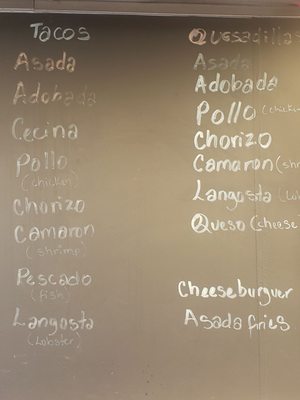 Tacos
Asada
Adobada
Cecina
Pollo
(chicken)
Chorizo
Camaron
(shrimp)
Pescado
(fish)
Langosta
(Lobster)
Quesadillas
Asada
Adobada
Pollo (chicken
Chorizo
Camaron (shr
Langosta (Lob
Queso (cheese
Cheeseburguer
Asada fries